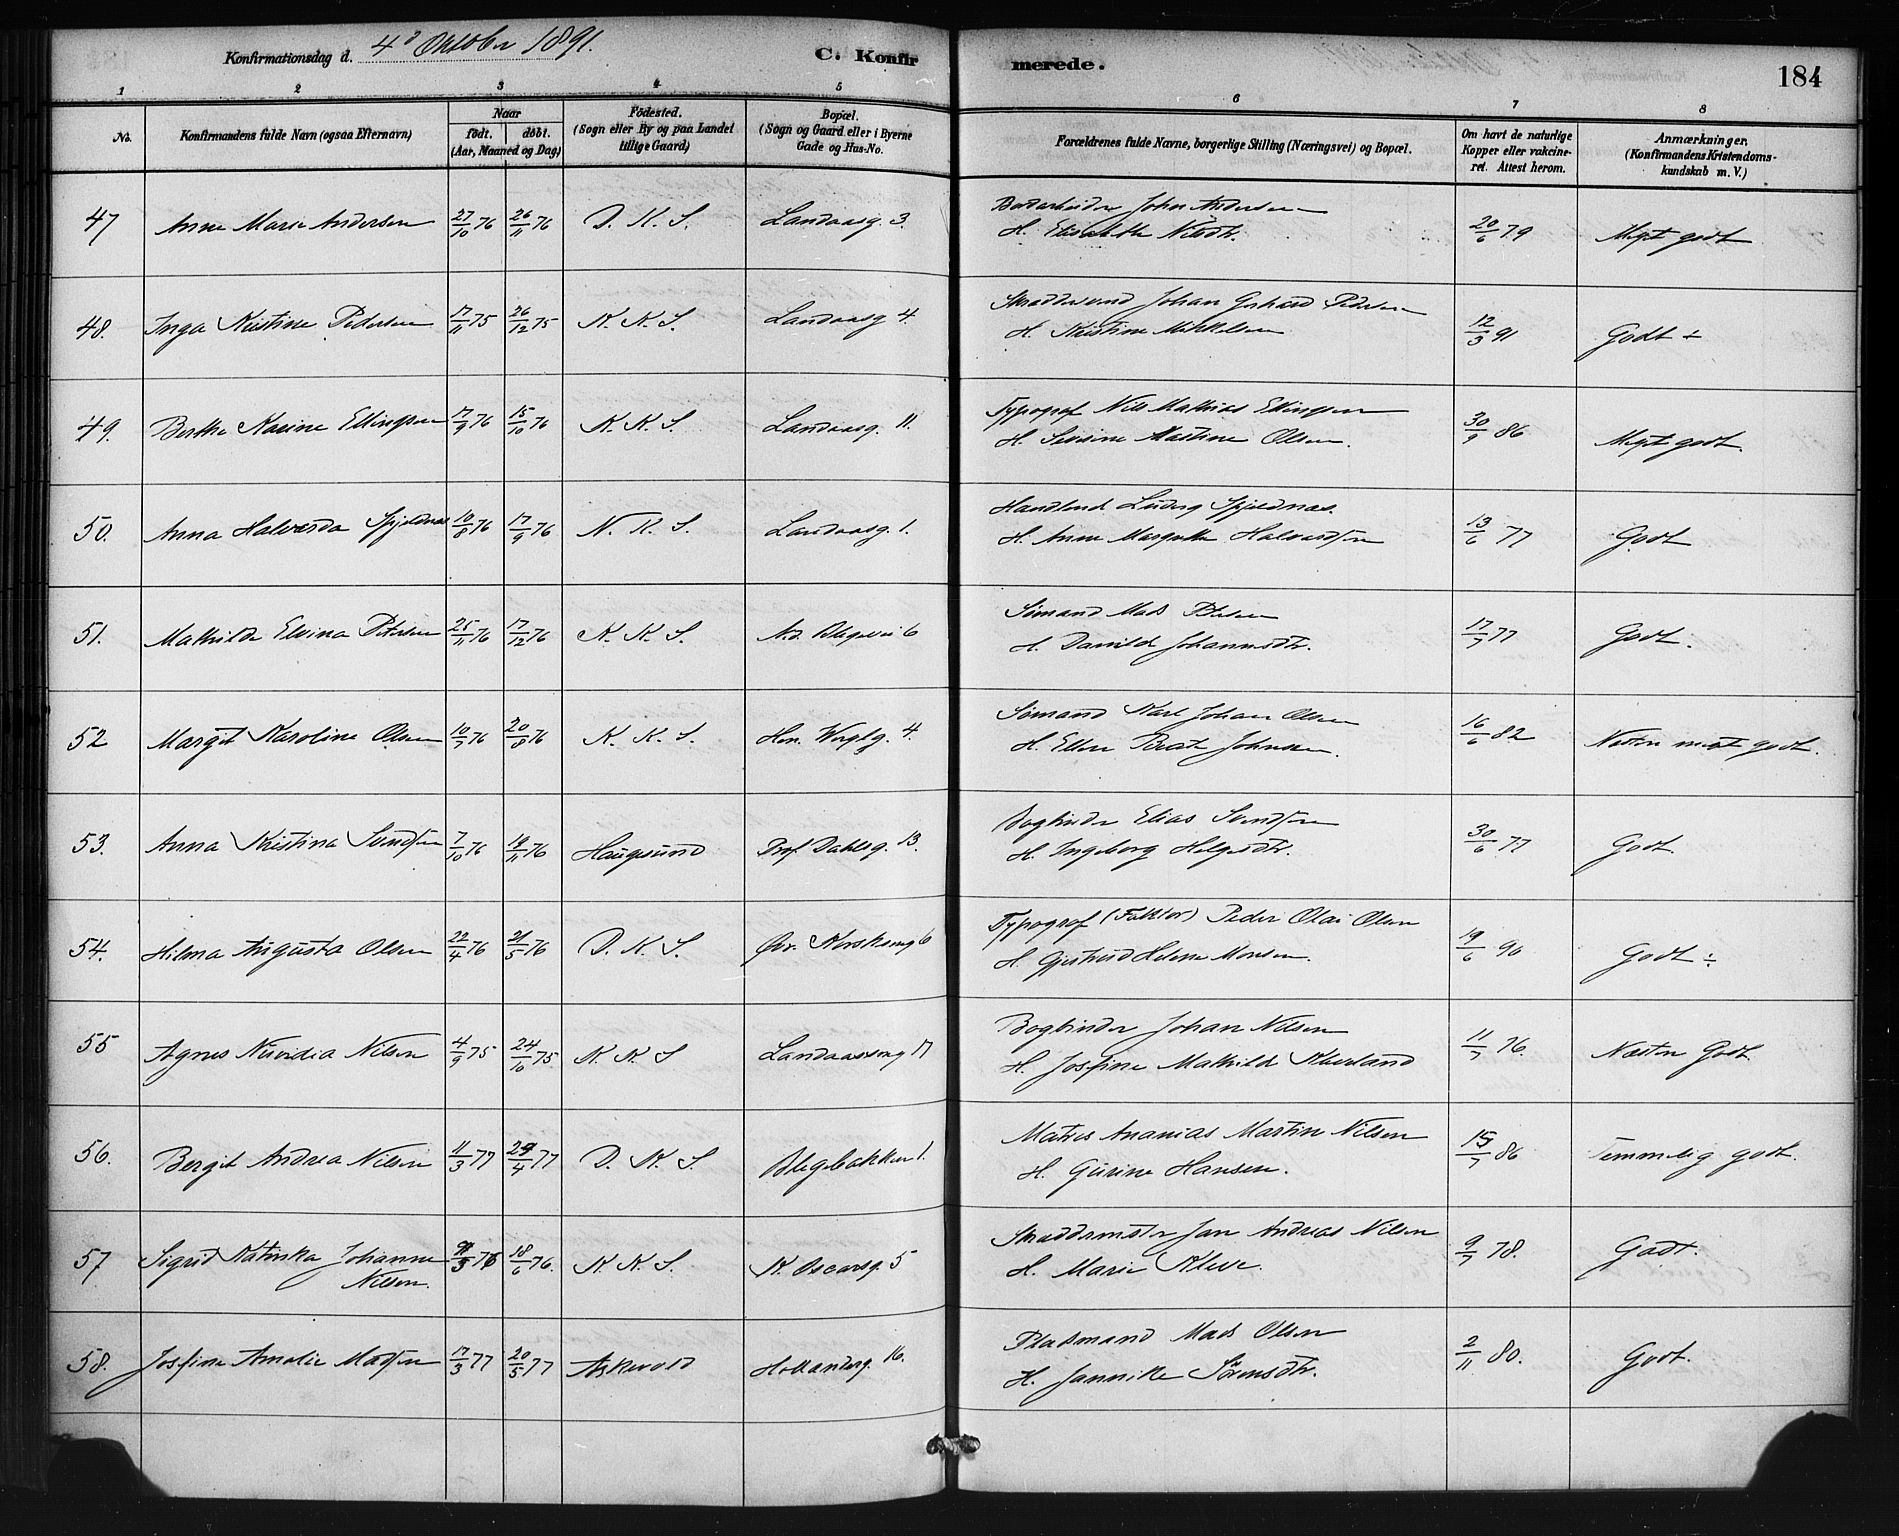 Konfirmationsdag d. 4de Oktober 1891. C. Konfir merede. 184
1 2 3 4 5 6 7 8
No. Konfirmandens fulde Navn (ogsaa Efternavn) Naar født. døbt. (Aar, Maaned og Dag) Fødested. (Sogn eller By og paa Landet tillige Gaard) Bopæl. (Sogn og Gaard eller i Byerne Gade og Hus-No. Forældrenes fulde Navne, borgerlige Stilling (Næringsvei) og Bopæl. Om havt de naturlige Kopper eller vakcineret. Attest herom. Anmærkninger. (Konfirmandens Kristendomskundskab m. V.)
47 Anne Marie Andersen 27/10 76 26/11 76 D. K. S. Landaasg. 3. John Andersen
H. Elisabeth Nilsdtr. 20/6 79 Meget godt
48. Inga Kristine Pedersen 17/11 75 26/12 75 K. K. S. Landaasg 4. Skræddersvend Johan Gerhard Pedersen
H. Kristine Mikkelsen 12/3 91 Godt ÷
49. Berthe Karine Ellingsen 17/9 76 15/10 76 K. K. S. Landaasg. 11. Typograf Nils Mathias Ellingsen
H. Severine Martine Olsen. 30/9 86 Meget godt.
50. Anna Halvarda Spjeldnæs 10/8 76 17/9 76 N. K. S. Landaasg. 1. Handlend Ludvig Spjeldnæs.
H. Anne Margrethe Halvardsen 13/6 77 Godt
51. Mathilde Elvina Petersen 25/11 76 17/12 76 K. K. S. Blegevei 6 Sømand Mads Petersen
H. Davilde Johannesdtr. 17/7 77 Godt.
52 Margit Karoline Olsen 10/7 76 20/8 76 K. K. S. Hen. Wergelg. 4. Sømand Karl Johan Olsen
H. Ellen Berat Johnsen. 16/6 82 Næsten meget godt.
53. Anna Kristina Svendsen 7/10 76 19/11 76 Haugesund Prof. Dahlsg. 13. Bogbinder Elias Svendsen
H. Ingeborg Helgesdtr. 30/6 77 Godt.
54. Hilma Augusta Olsen 22/4 76 21/5 76 D. K. S. Øvr. Korskirkeg 6 Typograf (Faktor) Peder Olai Olsen
H. Gjertrud Helene Monsen. 19/6 90 Godt ÷
55 Agnes Nuvidia Nilsen 4/9 75 24/10 75 K. K. S Landaasveng 17 Bogbinder Johan Nilsen
H. Josefine Mathilde Kleveland 11/7 76. Næsten Godt.
56. Bergit Andrea Nilsen 11/3 77 29/4 77 D. K. S. Blegebakken 1. Matros Ananias Martin Nilsen
H. Gurine Hansen. 15/7 86 Temmelig godt.
57 Sigrid Katinka Johanne
Nilsen. 76 18/6 76. K. K. S. K. Oscarsg. 5 Skræddermester Jan Andreas Nilsen
H. Marie Kleve. 9/7 78. Godt.
58. Josefine Amalie Madsen 17/3 77 20/5 77 Askevold Hollænderg. 16. Pladsmand Mads Olsen
H. Jannike Sørensdtr. 2/11 80. Godt.